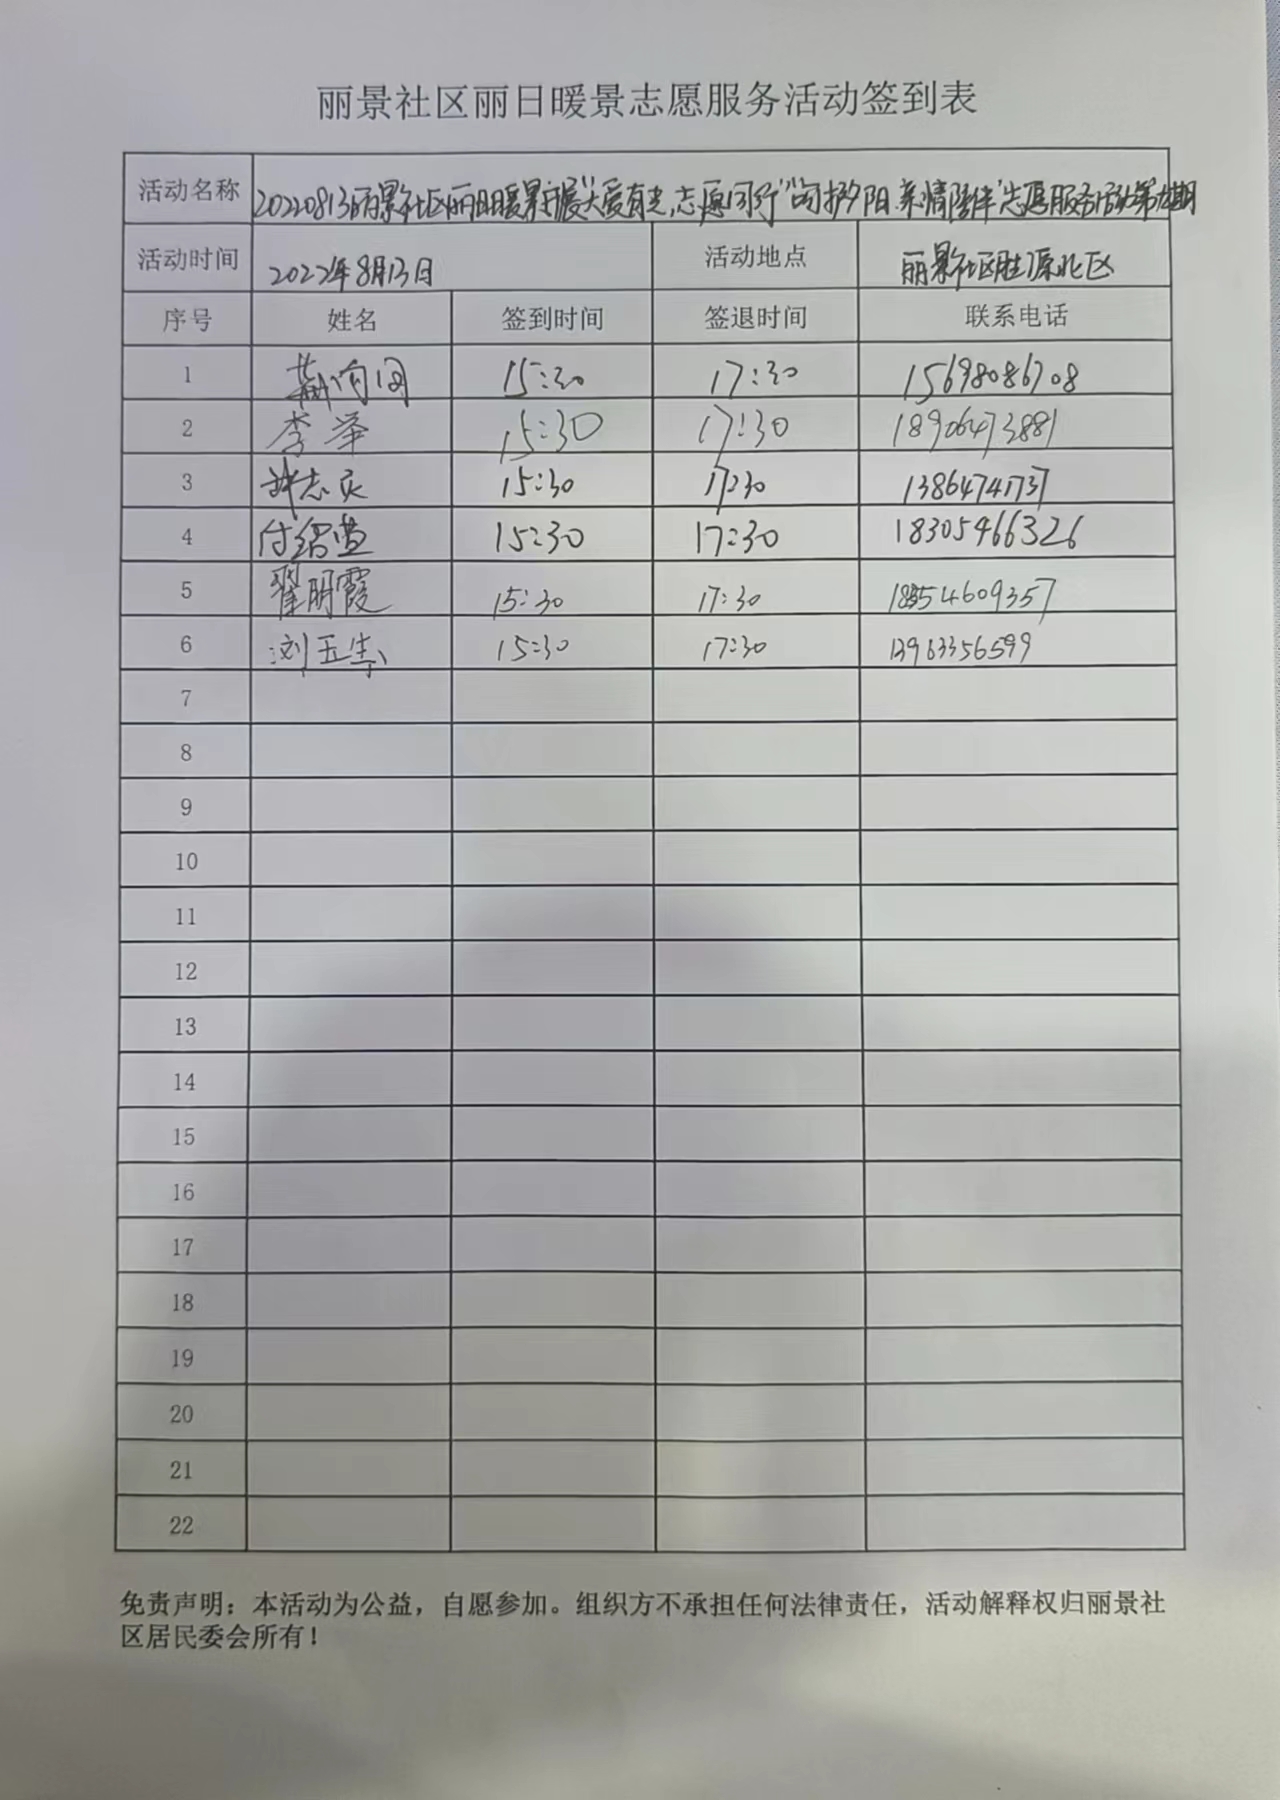 丽景社区丽日暖景志愿服务活动签到表
活动名称 20220813丽景社区丽日暖景开展"大爱有光,志愿同行""呵护夕阳 亲情陪伴"志愿服务活动第 期
活动时间 2022年8月13日 活动地点 丽景社区胜源北区
序号 姓名 签到时间 签退时间 联系电话
1 15:30 17:30 15698086708
2 李举 15:30 17:30 18906473881
3 志 15:30 17:30 13864741737
4 付 15:30 17:30 18305466326
5 翟明霞 15:30 17:30 18554609357
6 刘玉 15:30 17:30 13963356599
7
8
9
10
11
12
13
14
15
16
17
18
19
20
21
22
免责声明：本活动为公益，自愿参加。组织方不承担任何法律责任，活动解释权归丽景社
区居民委会所有！